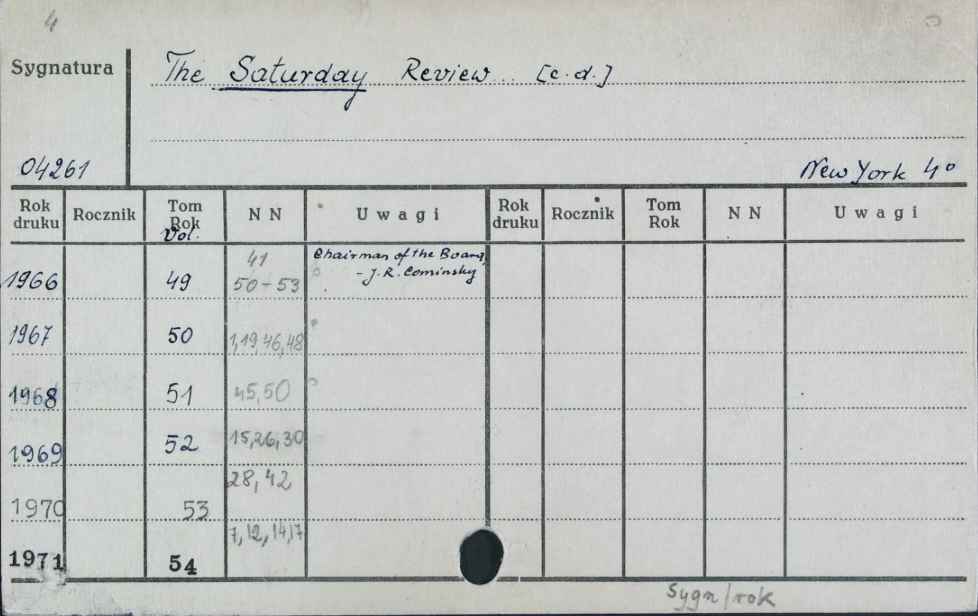 4
Sygnatura The Saturday Review [c.d.]
04261 New York 4°
Rok druku Rocznik Tom Rok Vol. NN Uwagi Rok druku Rocznik Tom Rok NN Uwagi
1966 49 41 50-53 Chairman of the Board
- J.R. Cominsky
1967 50 1,19,46,48
1968 51 45,50
1969 52 15,26,30
1970 53 28,42
1971 54 7,12,14,17
Sygn/rok